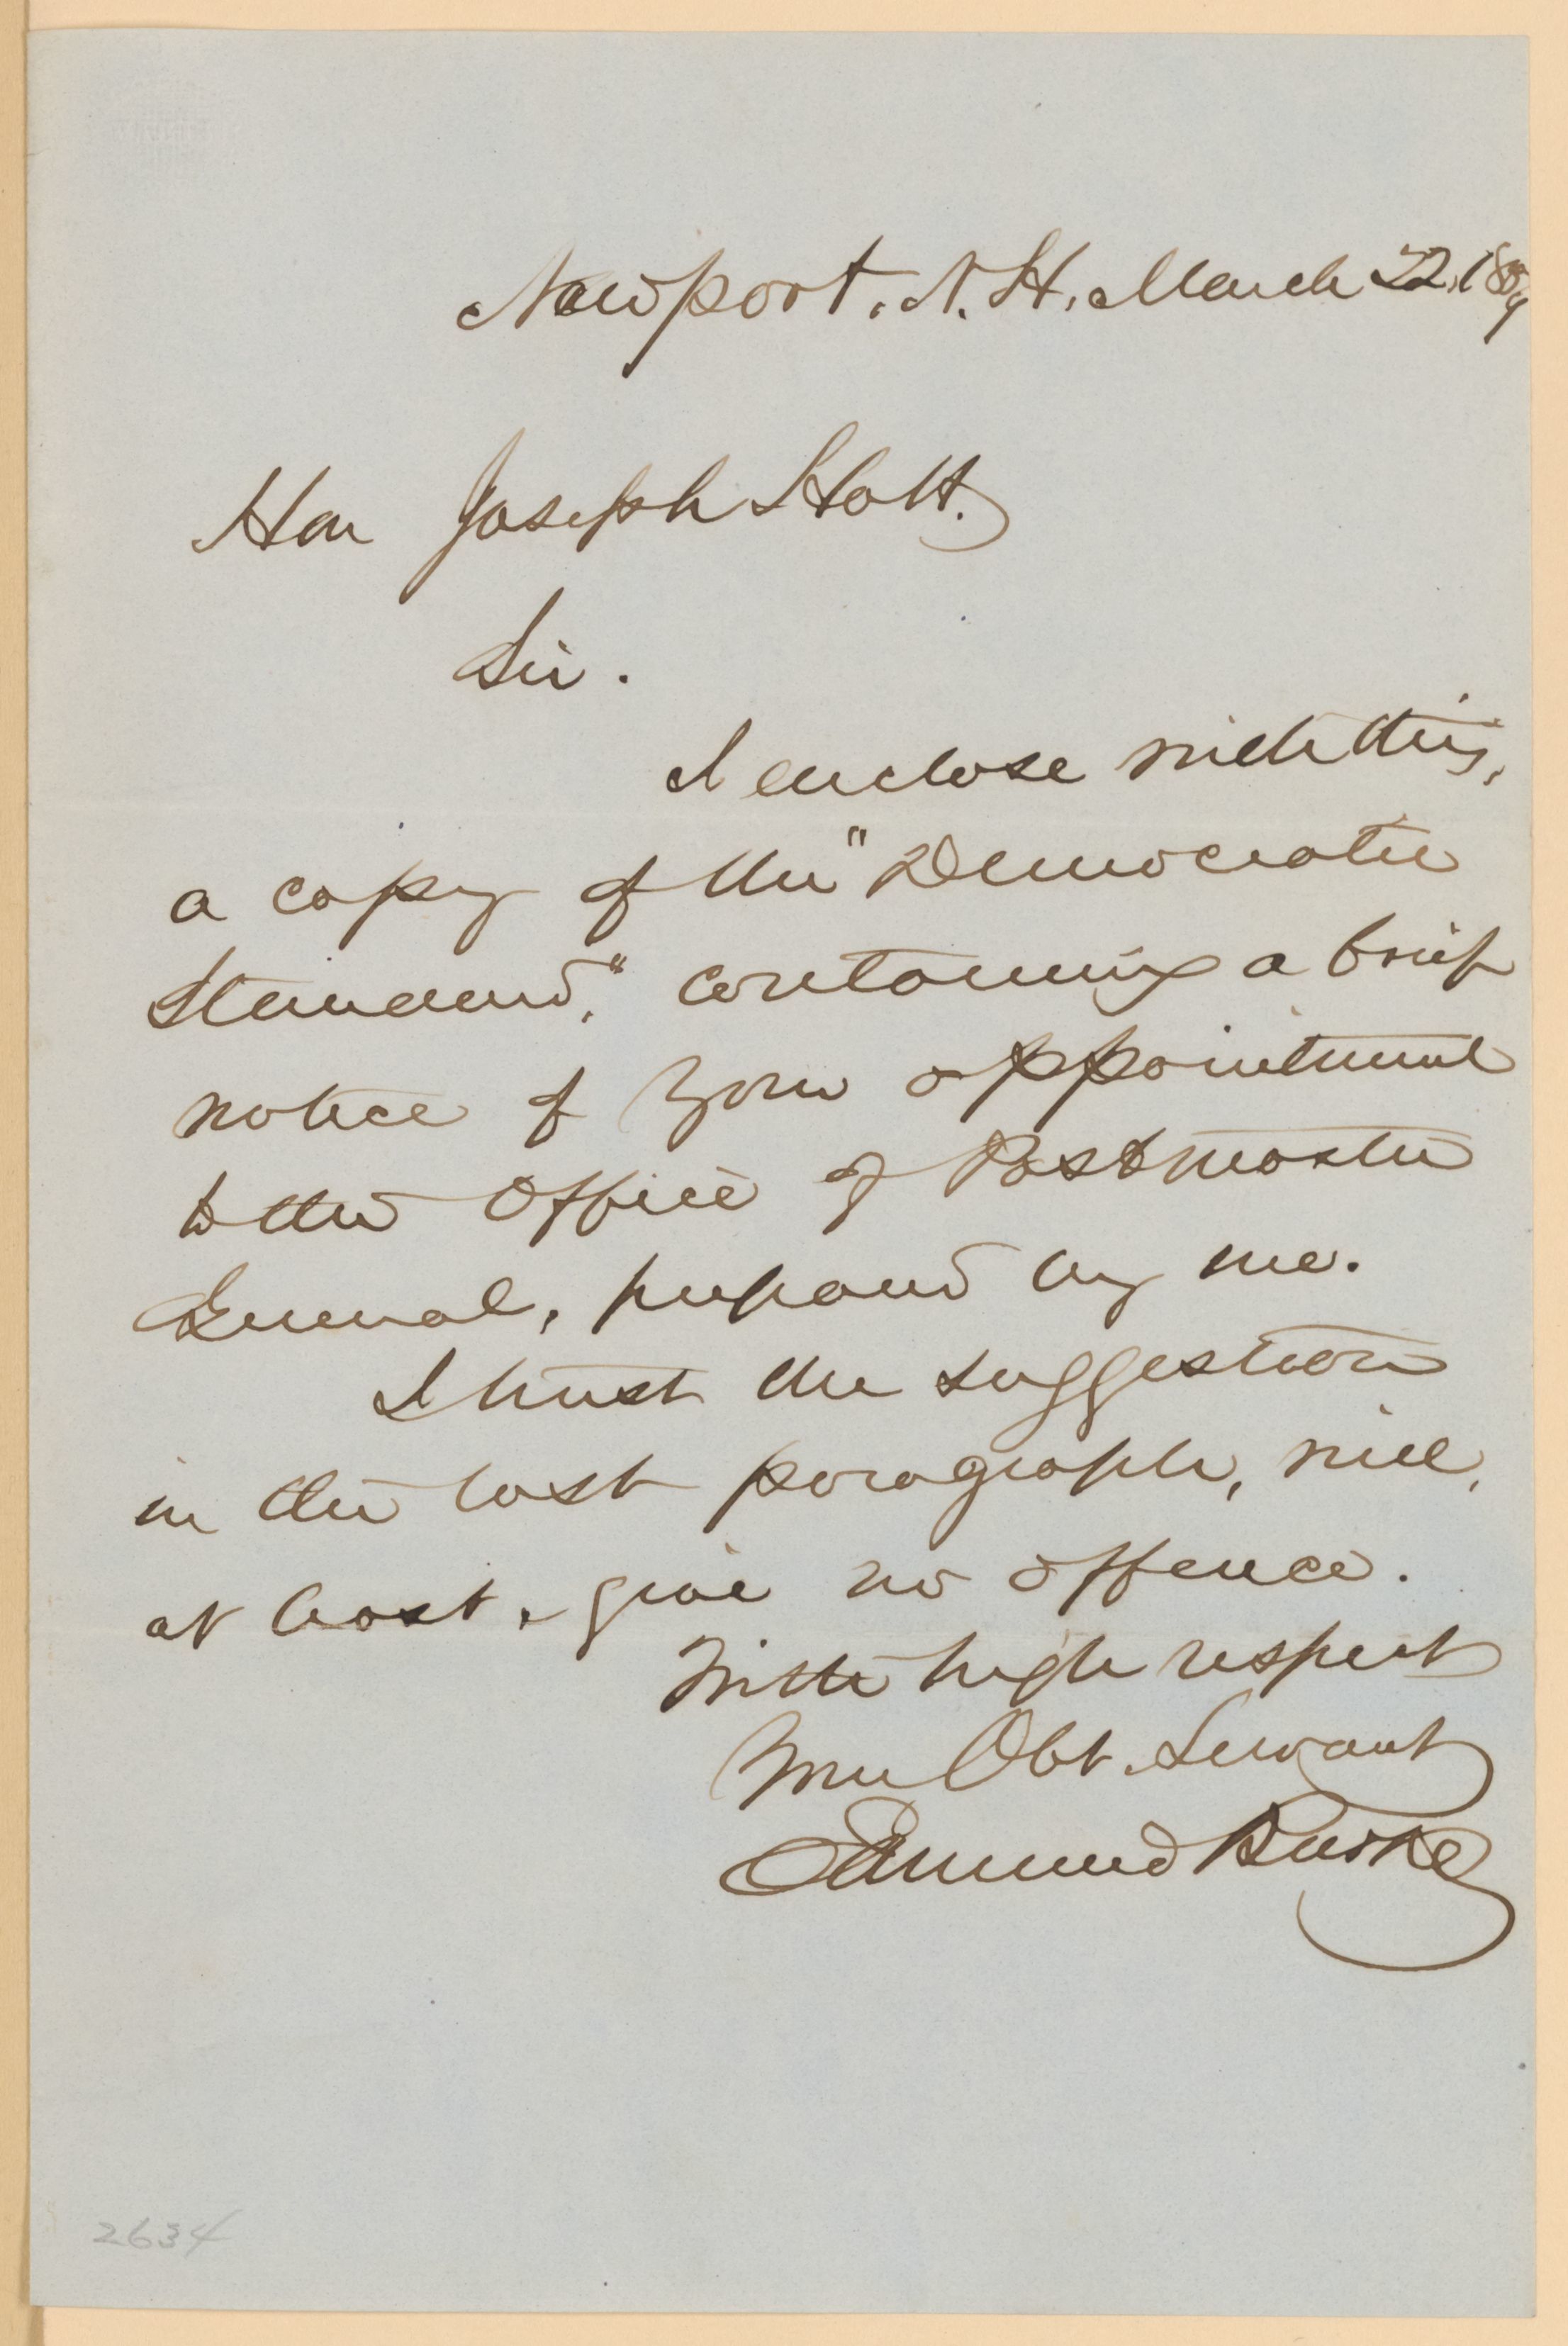 Newport, N. H, March 22, 1859
Hon Joseph Holt.
Sir.
I enclose with this,
a copy of the "Democratic
Standard," containing a brief
notice of your appointment
to the Office of Postmaster
General, prepared by me.
I trust the suggestion
in the last paragraph, will,
at least, give no offence.
With high respect
Your Obt. Servant
Edmund Burke
2634